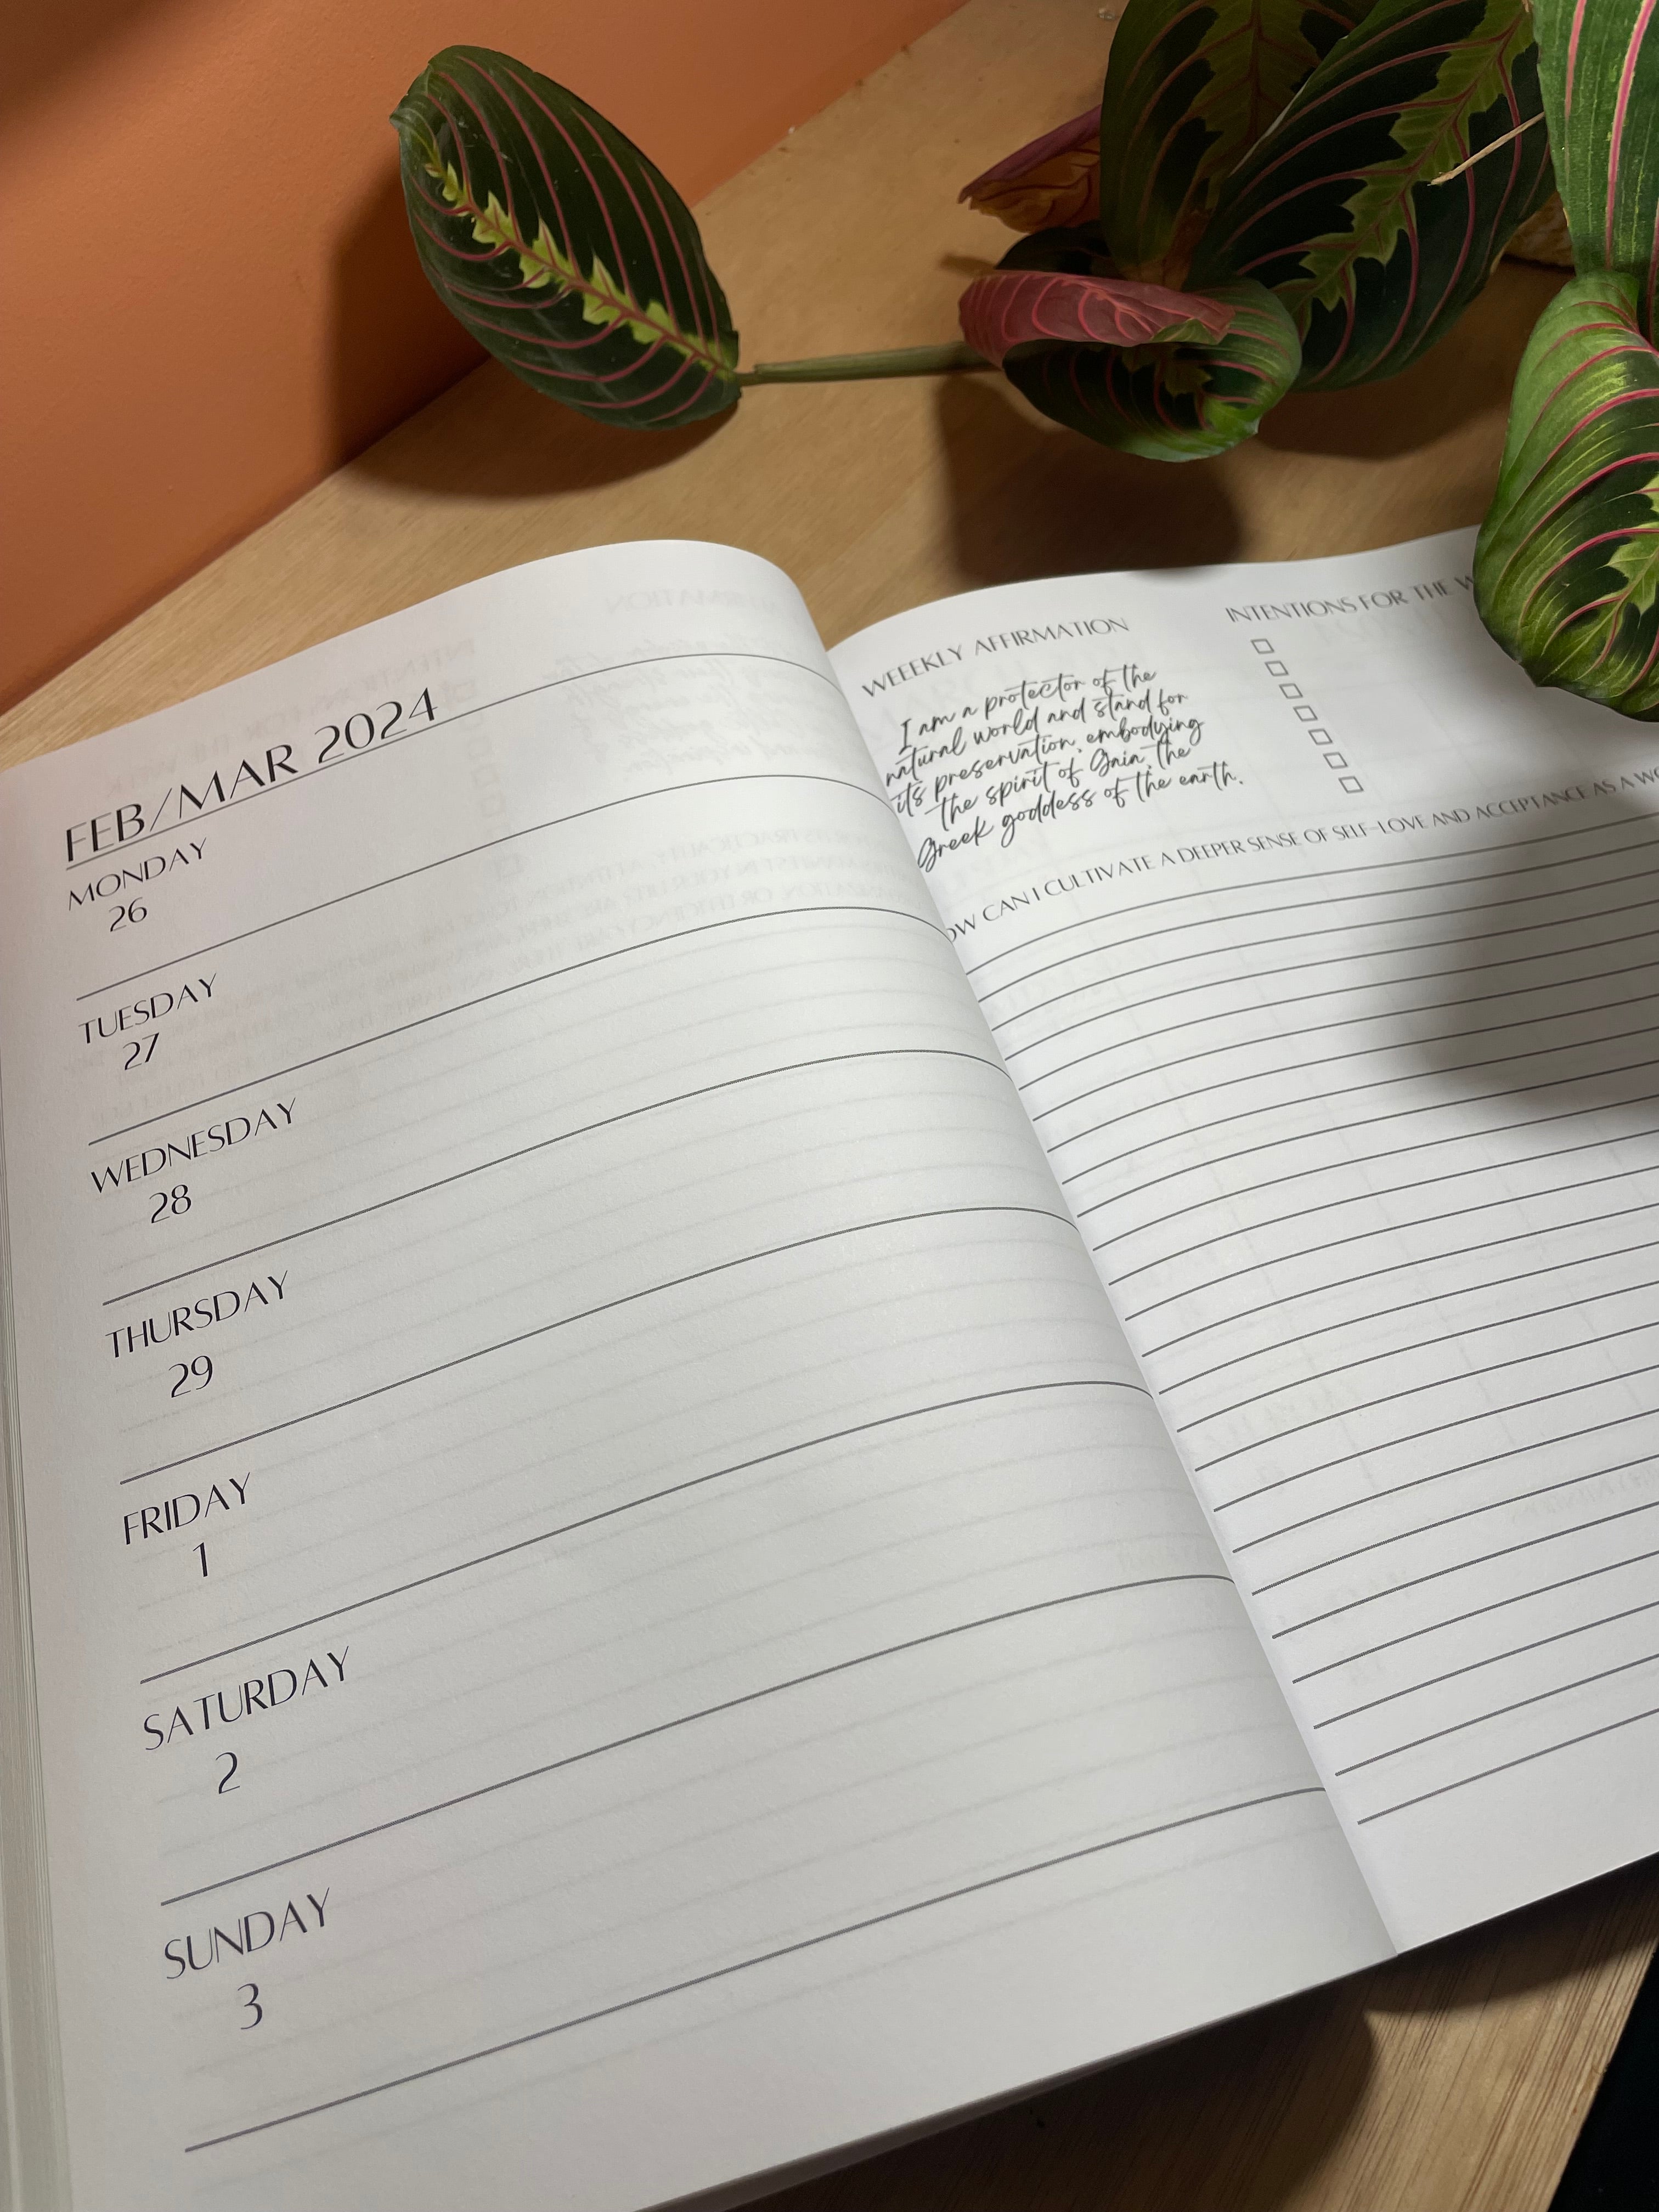 FEB/MAR 2024
MONDAY
26
TUESDAY
27
WEDNESDAY
28
THURSDAY
29
FRIDAY
1
SATURDAY
2
SUNDAY
3
WEEEKLY AFFIRMATION
I am a protector of the
natural world and stand for
its preservation, embodying
the spirit of Gaia, the
Greek goddess of the earth.
INTENTIONS FOR THE
CAN I CULTIVATE A DEEPER SENSE OF SELF-LOVE AND ACCEPTANCE AS A